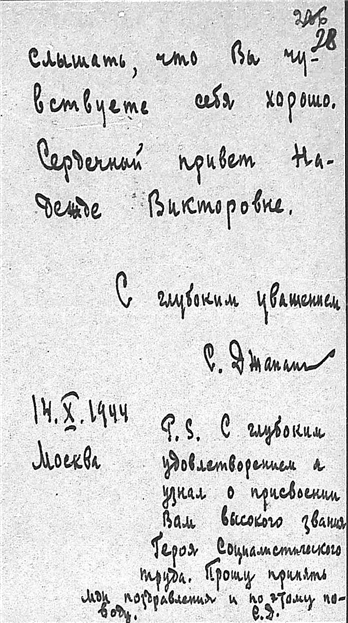 28
слышать, что Вы чу-
вствуете себя хорошо.
Сердечный привет На-
дежде Викторовне.
С глубоким уважением
С. Джанаш
14.X.1944
Москва
P.S. С глубоким
удовлетворением я
узнал о присвоении
Вам высокого звания
Героя Социалистического
труда. Прошу принять
мои поздравления и по этому по-
воду. С.Д.